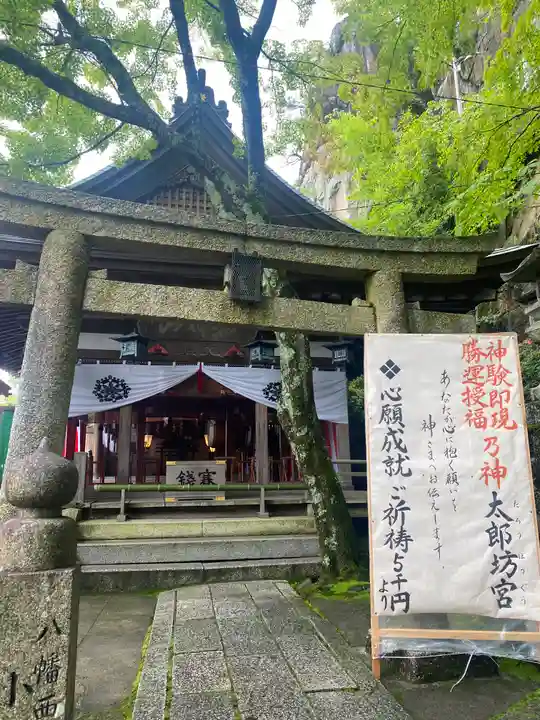 神験即現乃神
勝運授福
太郎坊宮
たろうぼうぐう
あなたの心に抱く願いを
神さまへお伝えします。
❖心願成就ご祈祷5千円より
賽銭
八幡西